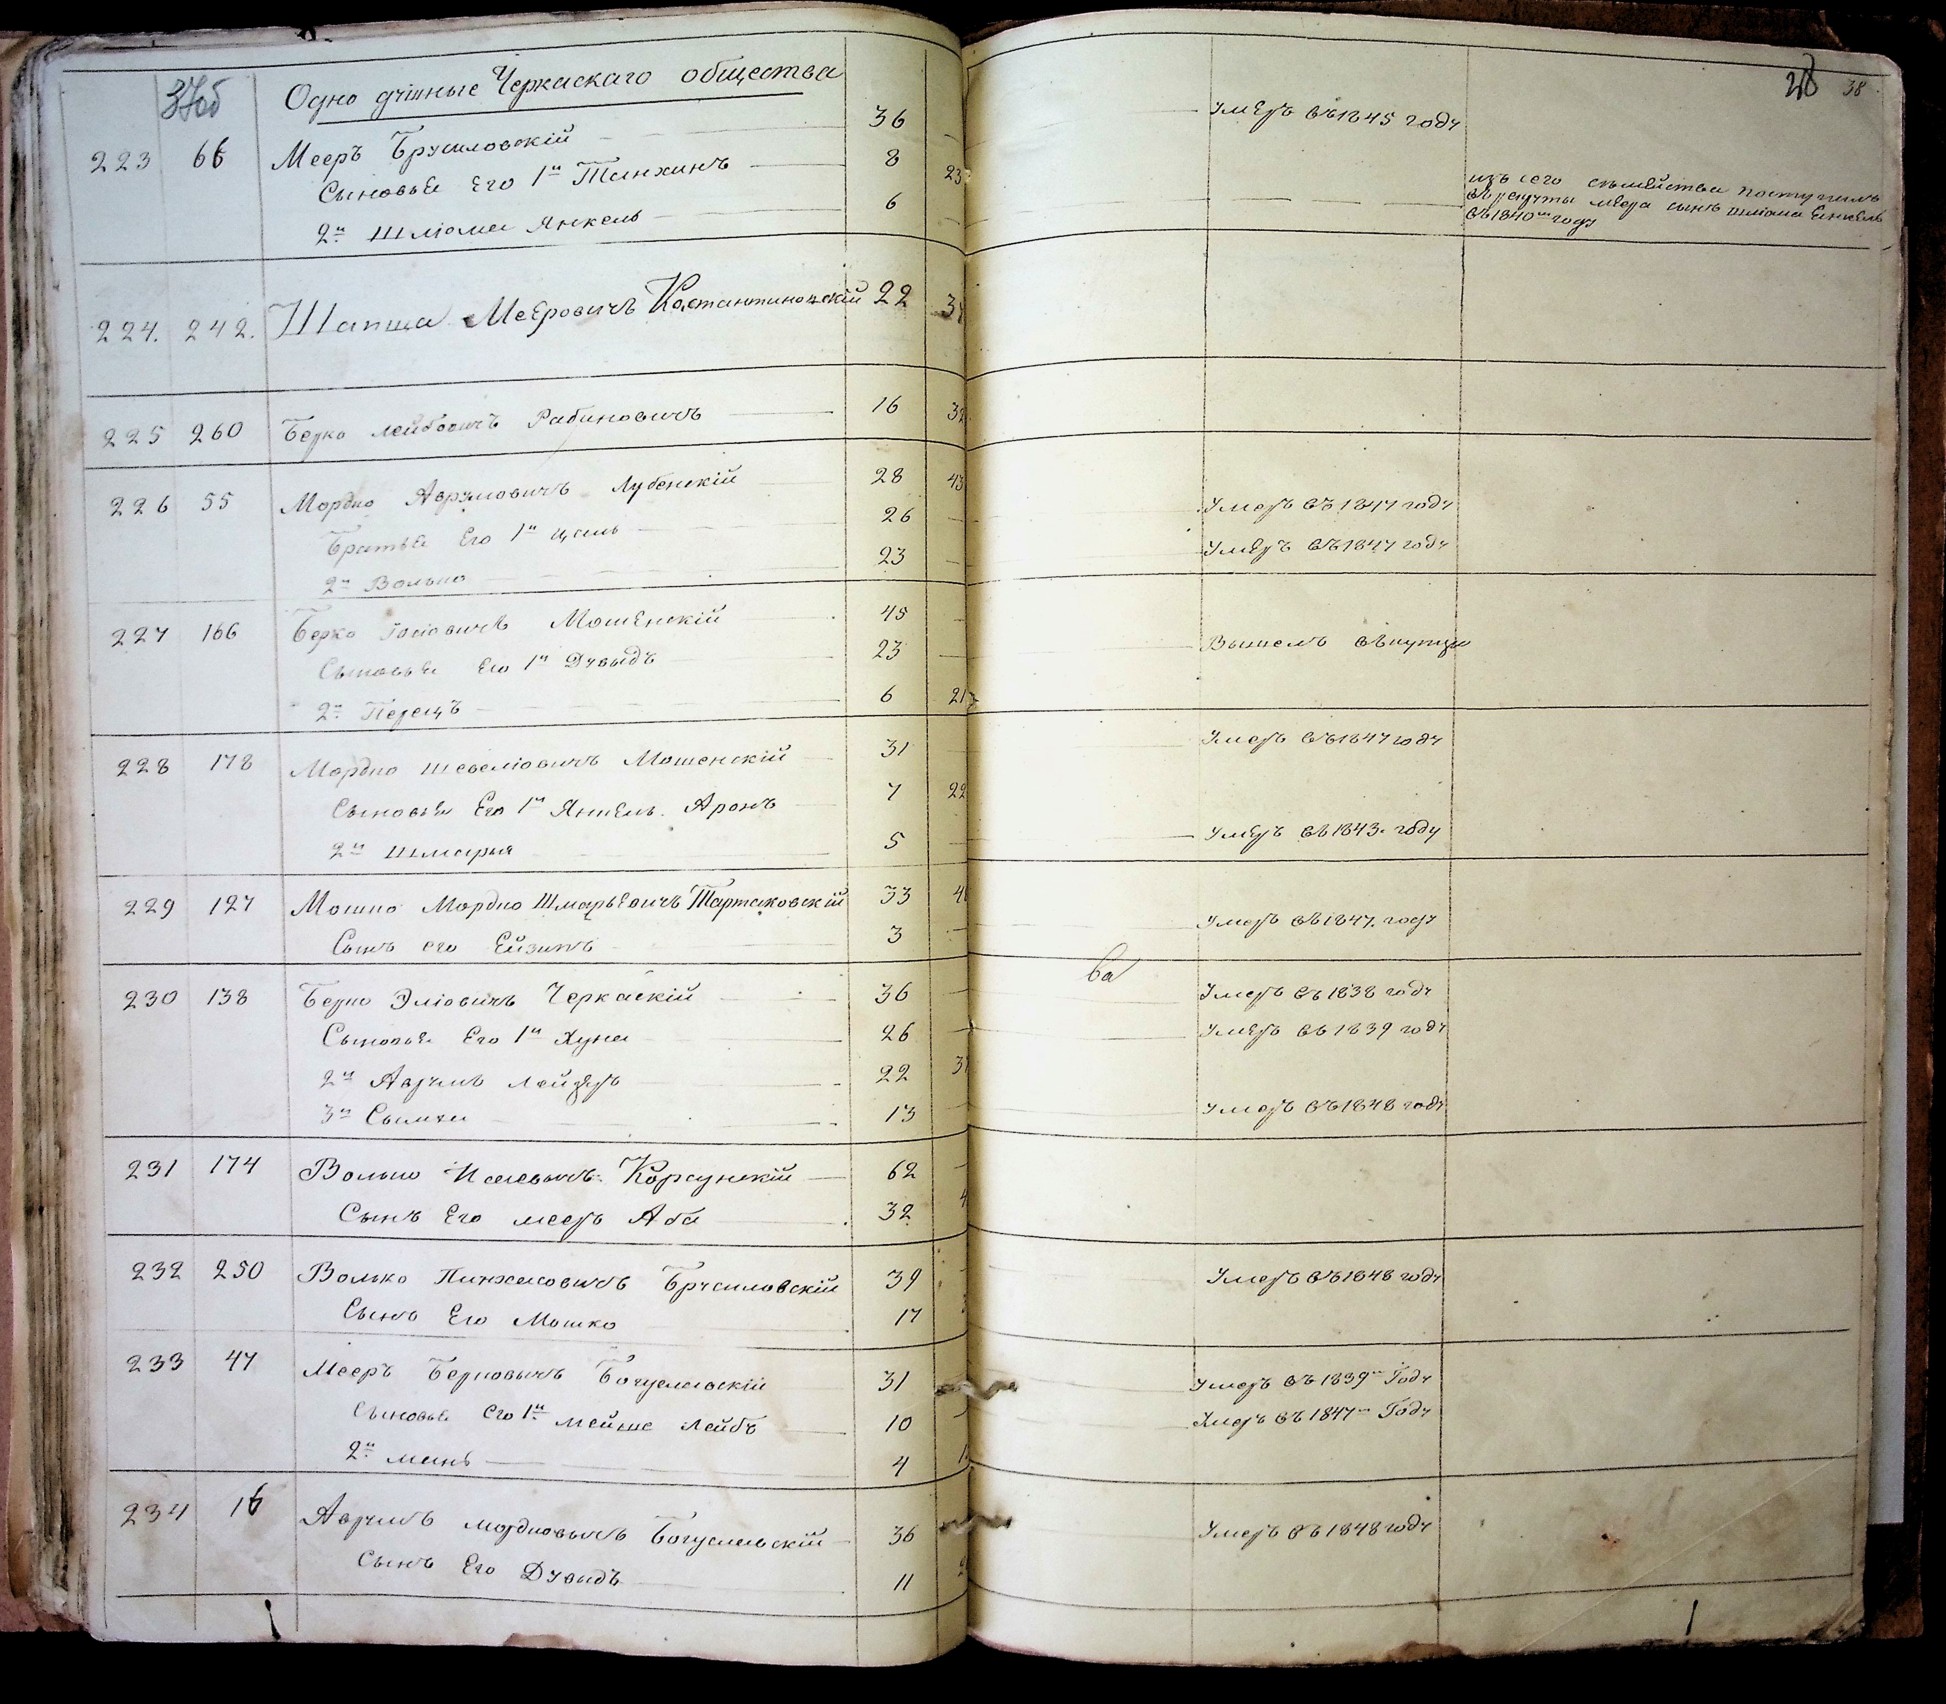 37об
Одно душные Черкаскаго общества
223 66 Мееръ Брусиловскій 36 Умеръ въ 1845 году
Сыновья Его 1й Танхимъ 8 23
2й Шліома Янкель 6 изъ сего семейства поступилъ
въ рекруты меера сынъ шліома Енкель
въ 1840м году
28 38
224. 242. Шапша Меєровичъ Костантиновскій 22
225 260 Берко лейбовичъ Рабиновичъ 16 32
226 55 Мордко Аврумовичъ Лубенскій 28 43
Братья Его 1й 26 Умеръ въ 1847 году
2й Волько 23 Умеръ въ 1847 году
227 166 Берко Іосіовичъ Мошенскій 45
Сыновья Его 1й Дувыдъ 23 Вышелъ въ купцы
2й Перецъ 6 21
228 178 Мордко шевеліовичъ Мошенскій 31 Умеръ въ 1847 году
Сыновья Его 1й Янкель Аронъ 7 22
2й Шмарья 5 Умеръ въ 1843. году
229 127 Мошко Мордко Шмарьевичъ Тартаковскій 33
Сынъ его Ейзикъ 3 Умеръ въ 1847. году
230 138 Берко Эліовичъ Черкаскій 36 Умеръ въ 1838 году
Сыновья Его 1й Хуна 26 Умеръ въ 1839 году
2й Аврумъ Лейзеръ 22
3й Сымха 13 Умеръ въ 1848 году
231 174 Волько Корсунскій 62
Сынъ Его мееръ Аба 32
232 250 Волько Пинхасовичъ Брусиловскій 39 Умеръ въ 1848 году
Сынъ Его Мошко 17
233 47 Мееръ Берковичъ Богуславскій 31 Умеръ въ 1839м Году
Сыновья его 1й мейше Лейбъ 10 Умеръ въ 1847м Году
2й 4
234 16 Аврумъ мордковичъ Богуславскій 36 Умеръ въ 1848 году
Сынъ Его Дувыдъ 11